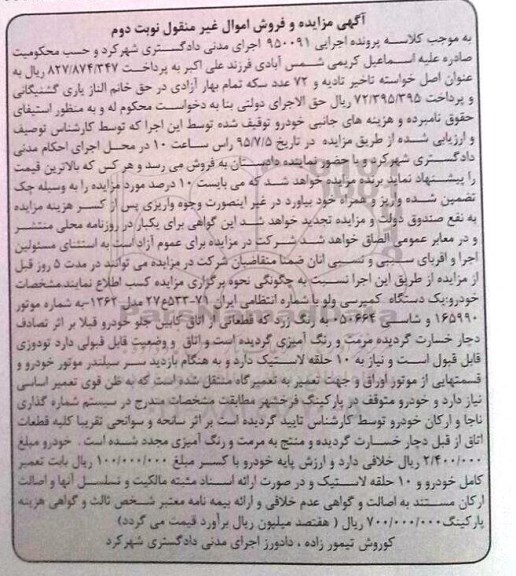 آگهی مزایده و فروش اموال غیر منقول نوبت دوم
به موجب کلاسه پرونده اجرایی ۹۵۰۰۹۱ اجرای مدنی دادگستری شهرکرد و حسب محکومیت
صادره علیه اسماعیل کریمی شمس آبادی فرزند علی اکبر به پرداخت ۸۲۷/۸۷۴/۳۴۷ ریال به
عنوان اصل خواسته تاخیر تادیه و ۷۲ عدد سکه تمام بهار آزادی در حق خانم الناز یاری گشنیگانی
و پرداخت ۷۲/۳۹۵/۳۹۵ ریال حق الاجرای دولتی بنا به دخواست محکوم له و به منظور استیفای
حقوق نامبرده و هزینه های جانبی خودرو توقیف شده توسط این اجرا که توسط کارشناس توصیف
و ارزیابی شده از طریق مزایده در تاریخ ۹۵/۷/۵ راس ساعت ۱۰ در محل اجرای احکام مدنی
دادگستری شهرکرد و با حضور نماینده دادستان به فروش می رسد و هر کس که بالاترین قیمت
را پیشنهاد نماید برنده مزایده خواهد شد که می بایست ۱۰ درصد مورد مزایده را به وسیله چک
تضمین شده واریز و همراه خود بیاورد در غیر اینصورت وجوه واریزی پس از کسر هزینه مزایده
به نفع صندوق دولت و مزایده تجدید خواهد شد این گواهی برای یکبار در روزنامه محلی منتشر
و در معابر عمومی الصاق خواهد شد شرکت در مزایده برای عموم آزاد است به استثنای مسئولین
اجرا و اقربای سببی و نسبی آنان ضمنا متقاضیان شرکت در مزایده می توانند در مدت ۵ روز قبل
از مزایده از طریق این اجرا نسبت به چگونگی نحوه برگزاری مزایده کسب اطلاع نمایند مشخصات
خودرو:یک دستگاه کمپرسی ولو با شماره انتظامی ایران ۷۱-۵۳۳ع۲۷ مدل ۱۳۶۲-به شماره موتور
۱۶۵۹۹۰ و شاسی ۰۵۰۶۶۴ به رنگ زرد که قطعاتی از اتاق کابین جلو خودرو قبلا بر اثر تصادف
دچار خسارت گردیده مرمت و رنگ آمیزی گردیده است و اتاق و وضعیت قابل قبولی دارد تودوزی
قابل قبول است و نیاز به ۱۰ حلقه لاستیک دارد و به هنگام بازدید سر سیلندر موتور خودرو و
قسمتهایی از موتور اوراق و جهت تعمیر به تعمیرگاه منتقل شده است که به ظن قوی تعمیر اساسی
نیاز دارد و خودرو متوقف در پارکینگ فرخشهر مطابقت مشخصات مندرج در سیستم شماره گذاری
ناجا و ارکان خودرو توسط کارشناس تایید گردیده است بر اثر سانحه و سوانحی تقریبا کلیه قطعات
اتاق از قبل دچار خسارت گردیده و منتج به مرمت و رنگ آمیزی مجدد شده است . خودرو مبلغ
۲/۴۰۰/۰۰۰ ریال خلافی دارد و ارزش پایه خودرو با کسر مبلغ ۱۰۰/۰۰۰/۰۰۰ ریال بابت تعمیر
کامل خودرو و ۱۰ حلقه لاستیک و در صورت ارائه اسناد مثبته مالکیت و تسلسل آنها و اصالت
ارکان مستند به اصالت و گواهی عدم خلافی و ارائه بیمه نامه معتبر شخص ثالث و گواهی هزینه
پارکینگ ۷۰۰/۰۰۰/۰۰۰ ریال ( هفتصد میلیون ریال برآورد قیمت می گردد)
کوروش تیمور زاده ، دادورز اجرای مدنی دادگستری شهرکرد